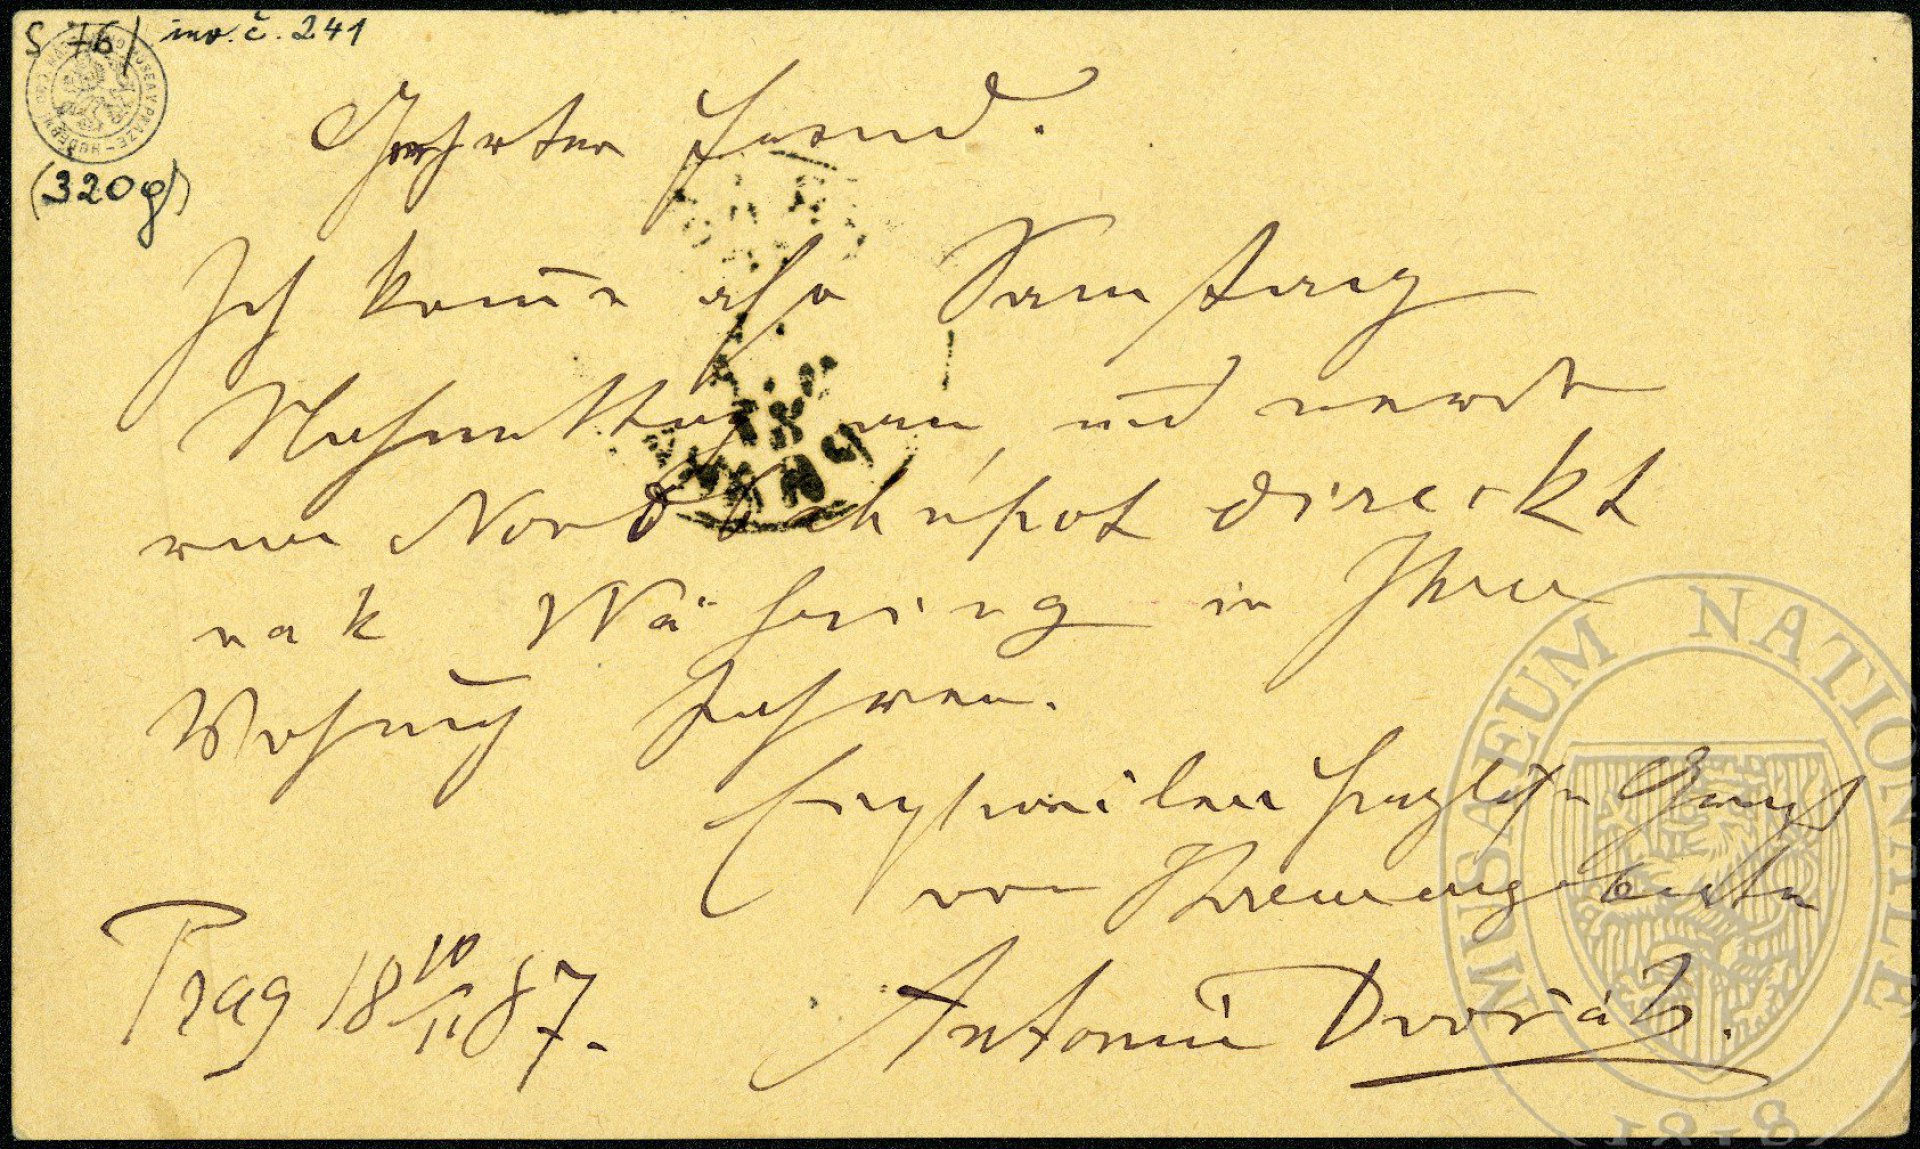 S 76/ inv. č. 241
(320g)
Geehrter Freund.
Ich kom̄e also Samstag
Nachmittag an, und werde
vom Nordbahnhof direckt
nach Währing in Ihre
Wohnung fahren.
Einstweilen herzlichen Gruß
von Ihrem ergebensten
Prag 18 10/11 87.
Antonín Dvořák.
MUSAEUM NATIONALE
1818